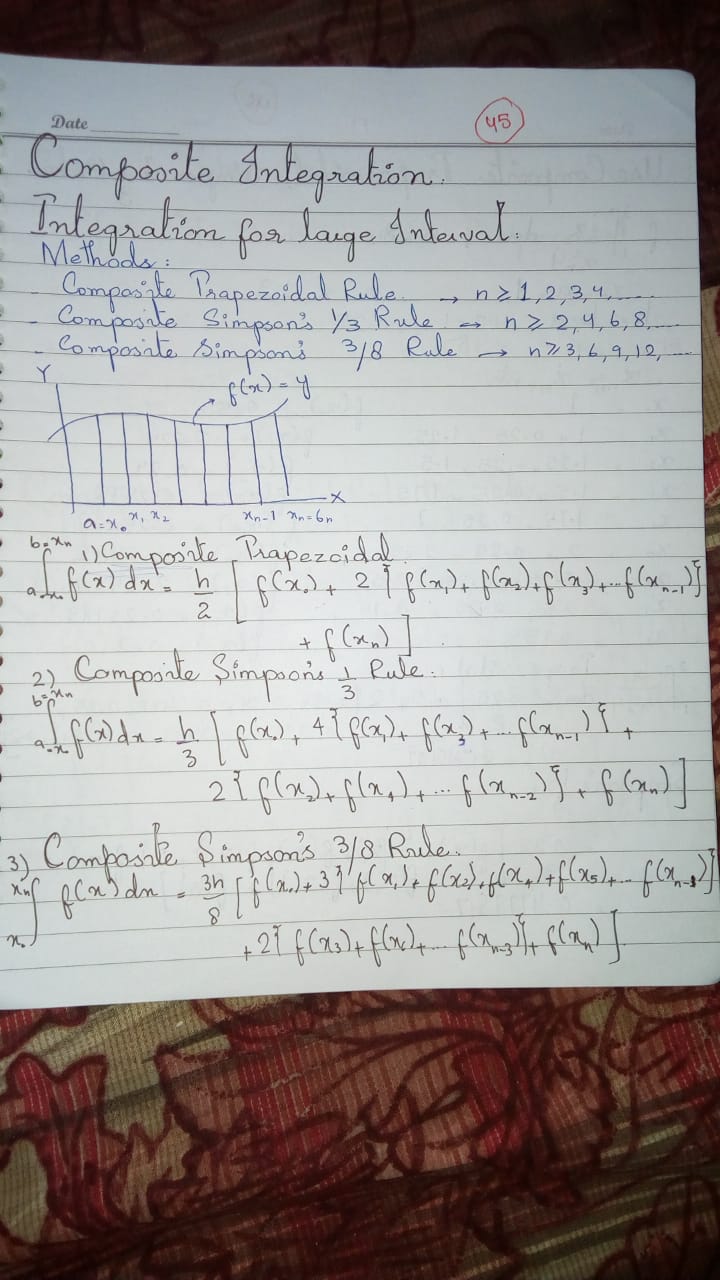 Date
45
Composite Integration.
Integration for large Interval.
Methods:
- Composite Trapezoidal Rule → n ≥ 1, 2, 3, 4, ......
- Composite Simpson's 1/3 Rule → n ≥ 2, 4, 6, 8, ....
- Composite Simpson's 3/8 Rule → n ≥ 3, 6, 9, 12, ....
Y
f(x) = y
X
a = x₀ x₁ x₂ xₙ₋₁ xₙ = bₙ
1) Composite Trapezoidal
∫ₐ₌ₓ₀^(b=xₙ) f(x) dx = h/2 [ f(x₀) + 2 { f(x₁) + f(x₂) + f(x₃) + ... f(xₙ₋₁) }
+ f(xₙ) ]
2) Composite Simpson's 1/3 Rule.
∫ₐ₌ₓ₀^(b=xₙ) f(x) dx = h/3 [ f(x₀) + 4 { f(x₁) + f(x₃) + ... f(xₙ₋₁) } +
2 { f(x₂) + f(x₄) + ... f(xₙ₋₂) } + f(xₙ) ]
3) Composite Simpson's 3/8 Rule.
∫ₓ₀^(xₙ) f(x) dx = 3h/8 [ f(x₀) + 3 { f(x₁) + f(x₂) + f(x₄) + f(x₅) + ...
+ 2 { f(x₃) + f(x₆) + ... f(xₙ₋₃) } + f(xₙ) ]